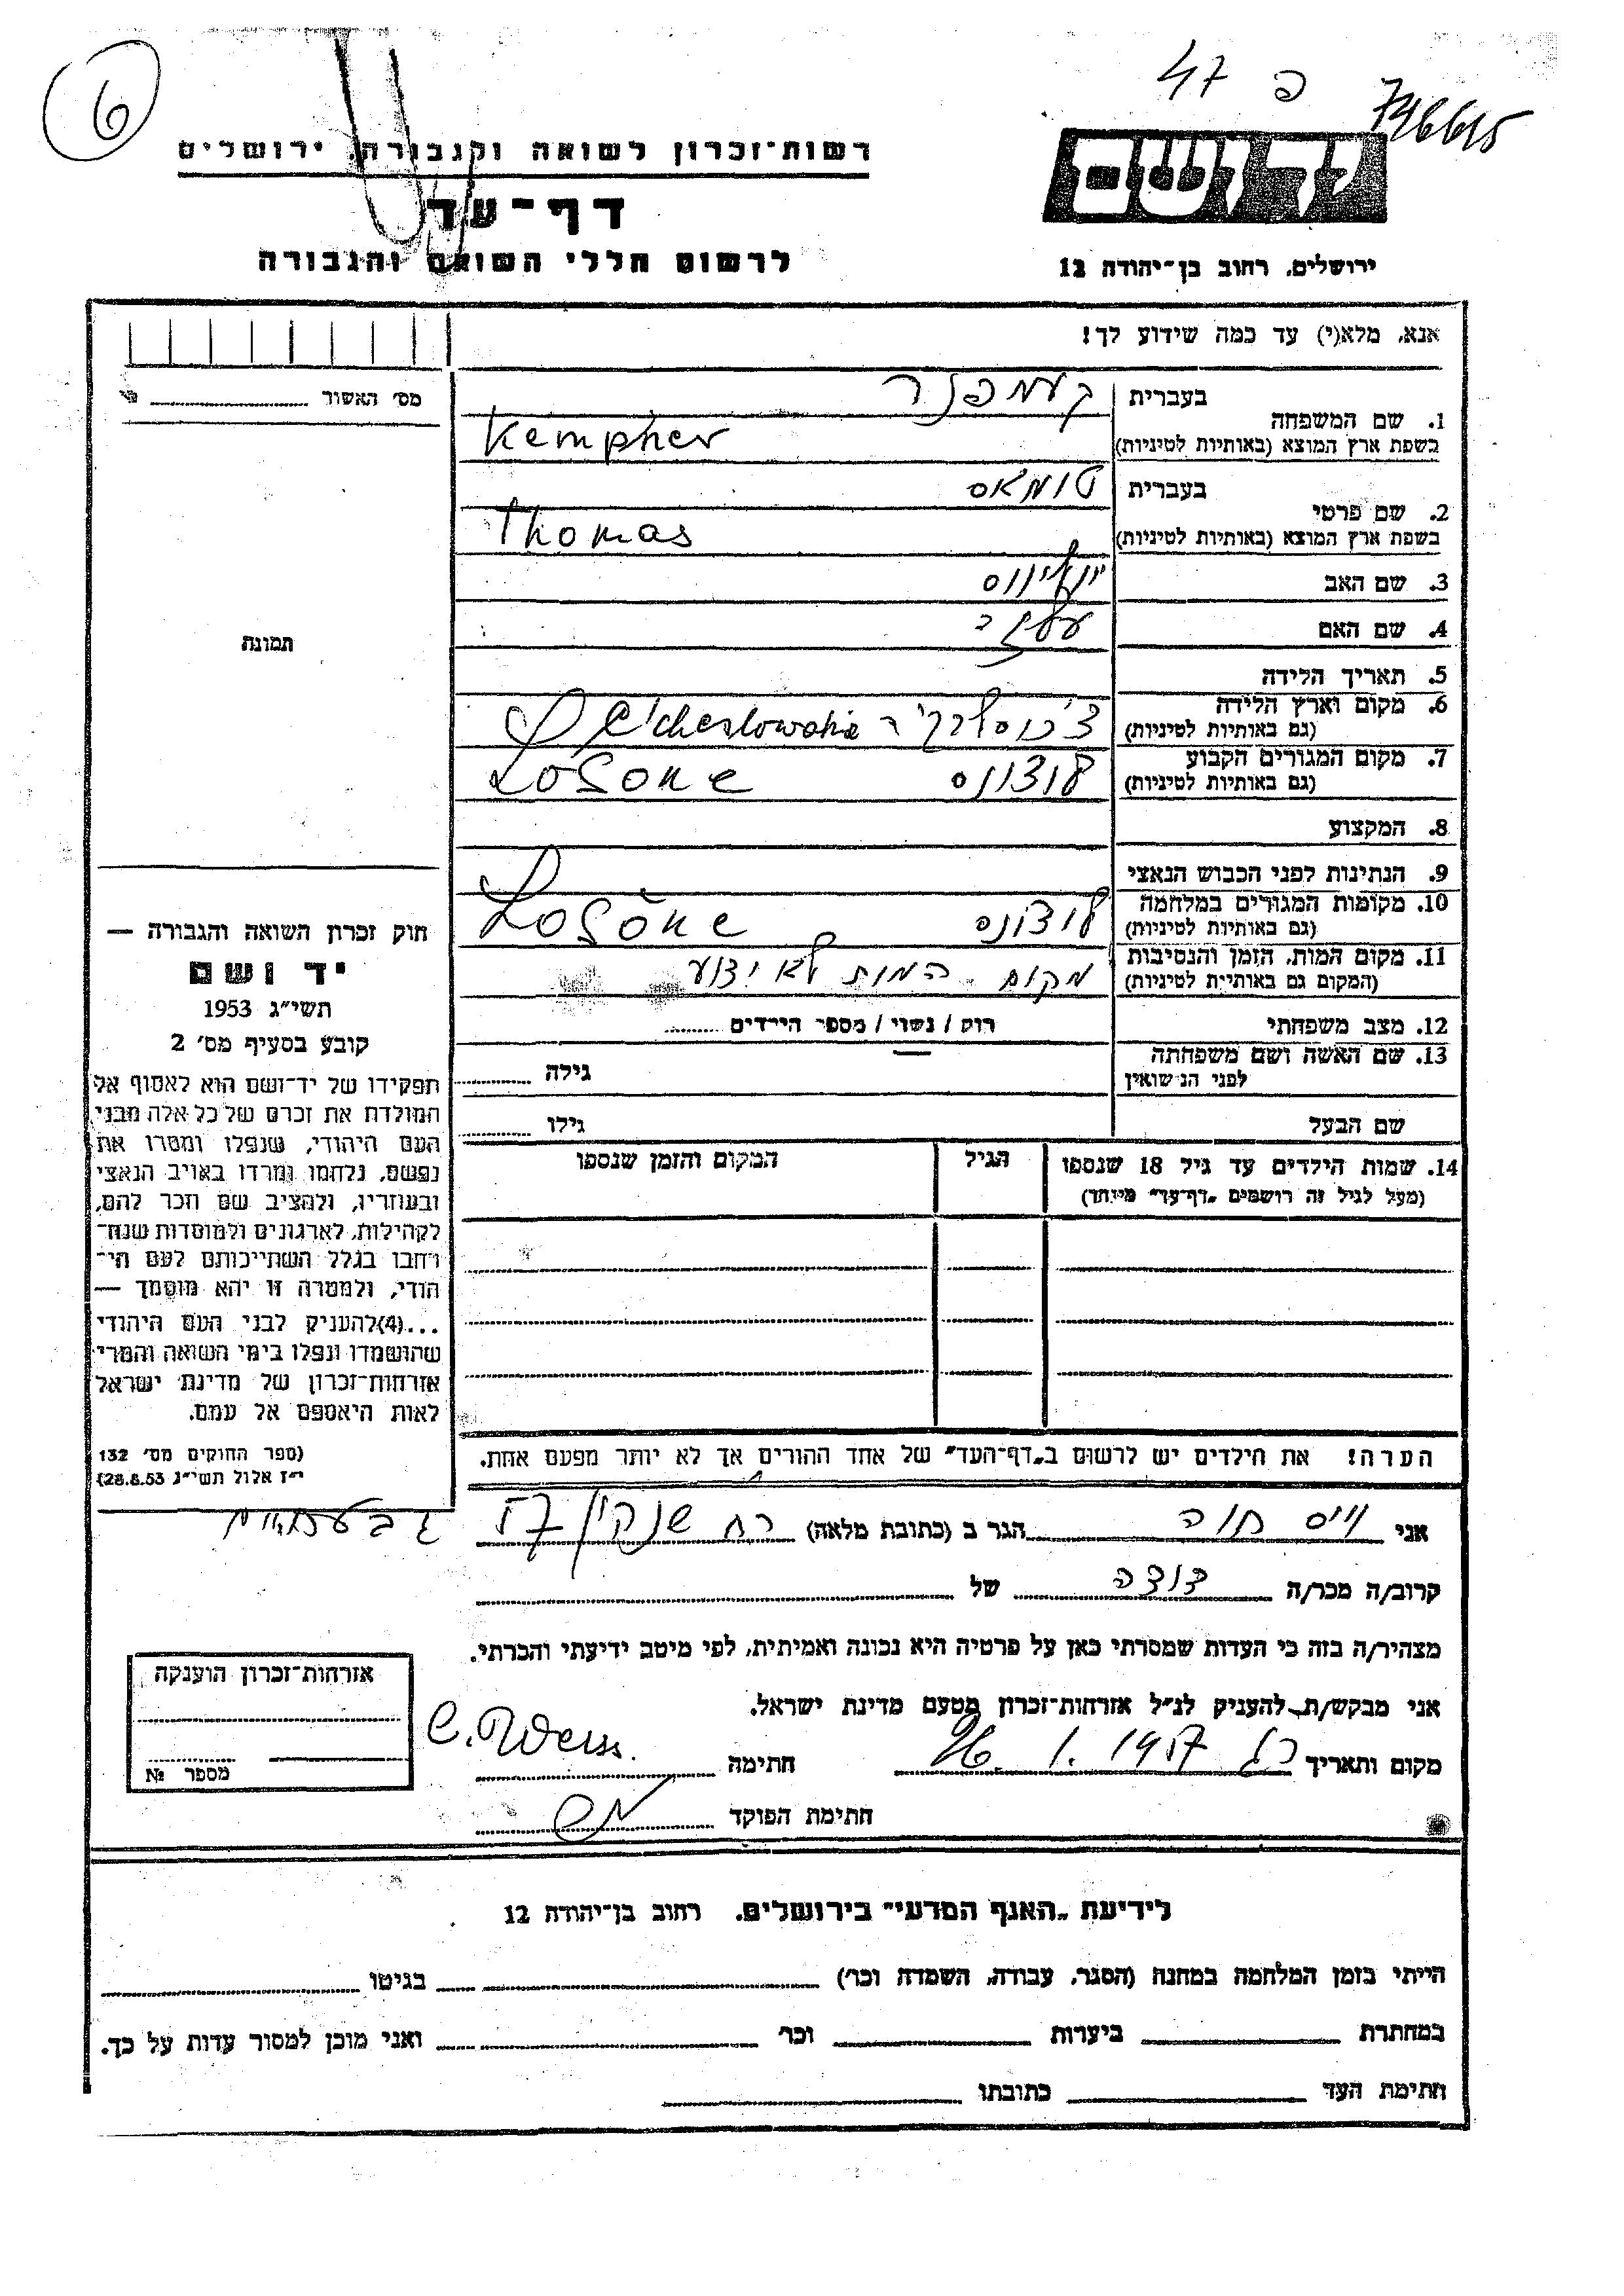 6
47 פ 746615
רשות־זכרון לשואה ולגבורה, ירושלים
ידושם
דף־עד
לרשום חללי השואה והגבורה
ירושלים, רחוב בן־יהודה 12
אנא, מלא(י) עד כמה שידוע לך!
מס׳ האשור
1. שם המשפחה
בעברית קעמפנר
בשפת ארץ המוצא (באותיות לטיניות) Kempner
2. שם פרטי
בעברית טומאס
בשפת ארץ המוצא (באותיות לטיניות) Thomas
3. שם האב יוליוס
4. שם האם
תמונה
5. תאריך הלידה
6. מקום וארץ הלידה
(גם באותיות לטיניות)
7. מקום המגורים הקבוע לוצונס Losonc
(גם באותיות לטיניות)
8. המקצוע
9. הנתינות לפני הכבוש הנאצי
10. מקומות המגורים במלחמה לוצונס Losonc
(גם באותיות לטיניות)
11. מקום המות, הזמן והנסיבות מקום המות לא ידוע
(המקום גם באותיות לטיניות)
12. מצב משפחתי רווק / נשוי / מספר הילדים
13. שם האשה ושם משפחתה גילה
לפני הנישואין
שם הבעל גילו
14. שמות הילדים עד גיל 18 שנספו הגיל המקום והזמן שנספו
(מעל לגיל זה רושמים „דף־עד״ מיוחד)
חוק זכרון השואה והגבורה —
יד ושם
תשי״ג 1953
קובע בסעיף מס׳ 2
תפקידו של יד־ושם הוא לאסוף אל
המולדת את זכרם של כל אלה מבני
העם היהודי, שנפלו ומסרו את
נפשם, נלחמו ומרדו באויב הנאצי
ובעוזריו, ולהציב שם וזכר להם,
לקהילות, לארגונים ולמוסדות שנח־
רבו בגלל השתייכותם לעם הי־
הודי, ולמטרה זו יהא מוסמך —
...(4)להעניק לבני העם היהודי
שהושמדו ונפלו בימי השואה והמרי
אזרחות־זכרון של מדינת ישראל
לאות היאספם אל עמם.
(ספר החוקים מס׳ 132
י״ז אלול תשי״ג 28.8.53)
הערה! את הילדים יש לרשום ב„דף־העד״ של אחד ההורים אך לא יותר מפעם אחת.
אני וייס חוה הגר ב (כתובת מלאה) רח שנקין 57 גבעתיים
קרוב/ה מכר/ה דודה של
מצהיר/ה בזה כי העדות שמסרתי כאן על פרטיה היא נכונה ואמיתית, לפי מיטב ידיעתי והכרתי.
אני מבקש/ת להעניק לנ״ל אזרחות־זכרון מטעם מדינת ישראל.
מקום ותאריך 26. 1. 1957 חתימה C. Weiss
חתימת הפוקד
אזרחות־זכרון הוענקה
מספר №
לידיעת „האגף המדעי״ בירושלים, רחוב בן־יהודה 12
הייתי בזמן המלחמה במחנה (הסגר, עבודה, השמדה וכו׳) בגיטו
במחתרת ביערות וכו׳ ואני מוכן למסור עדות על כך.
חתימת העד כתובתו